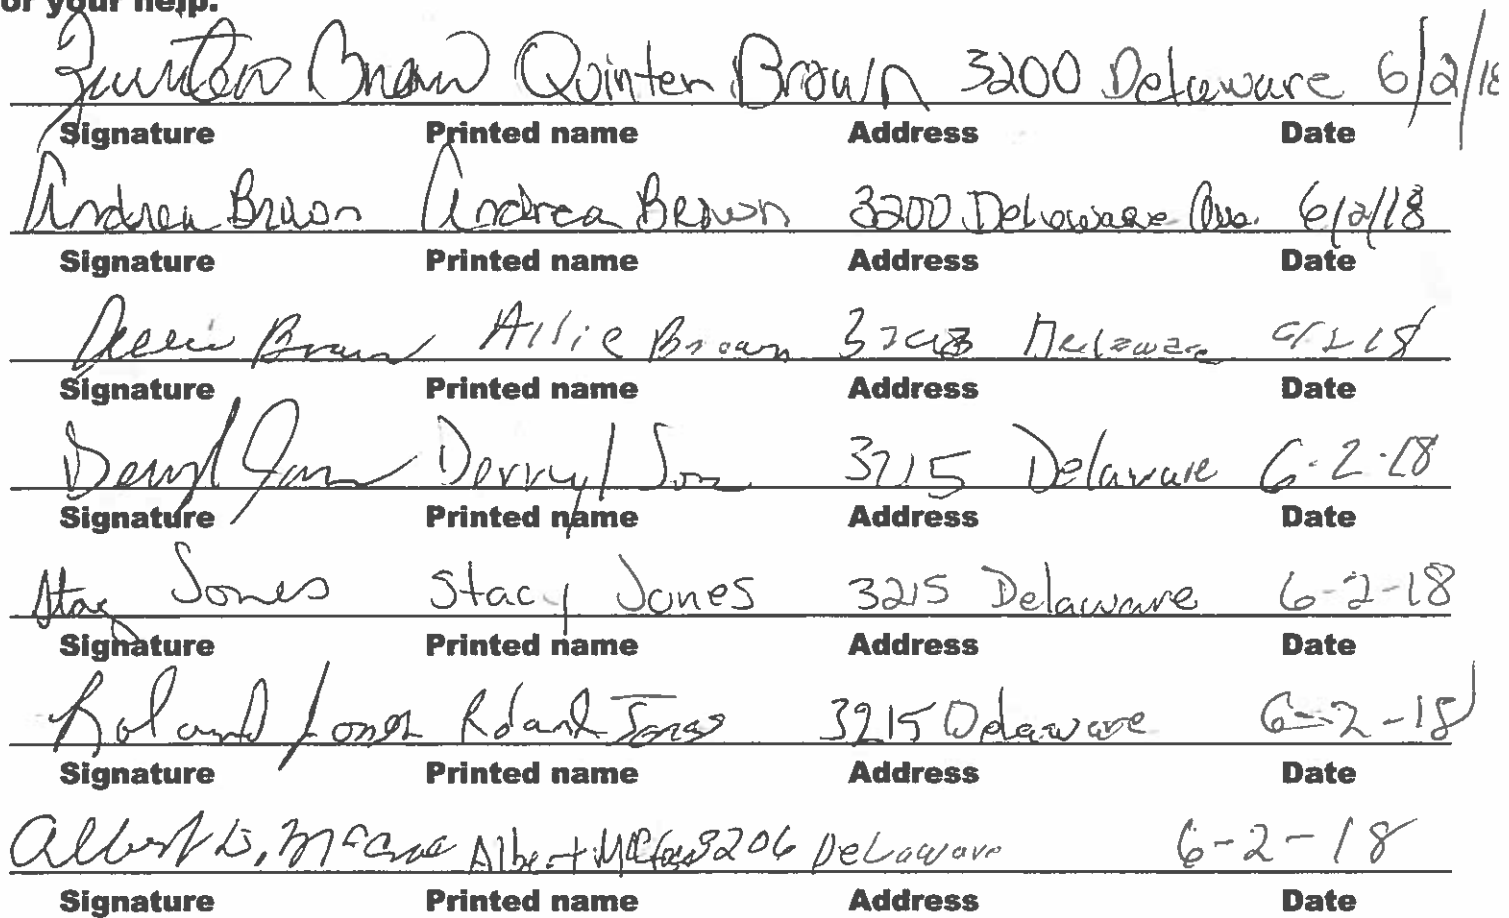 or your help.
Quinten Brown Quinten Brown 3200 Delaware 6/2/18
Signature Printed name Address Date
Andrea Brown Andrea Brown 3200 Delaware Ave. 6/2/18
Signature Printed name Address Date
Allie Brown Allie Brown Delaware
Signature Printed name Address Date
Derryl Jones Derryl Jon 3215 Delaware 6-2-18
Signature Printed name Address Date
Stacy Jones Stacy Jones 3215 Delaware 6-2-18
Signature Printed name Address Date
Roland Jones Roland Jones 3215 Delaware 6-2-18
Signature Printed name Address Date
Albert Albert 3206 Delaware 6-2-18
Signature Printed name Address Date